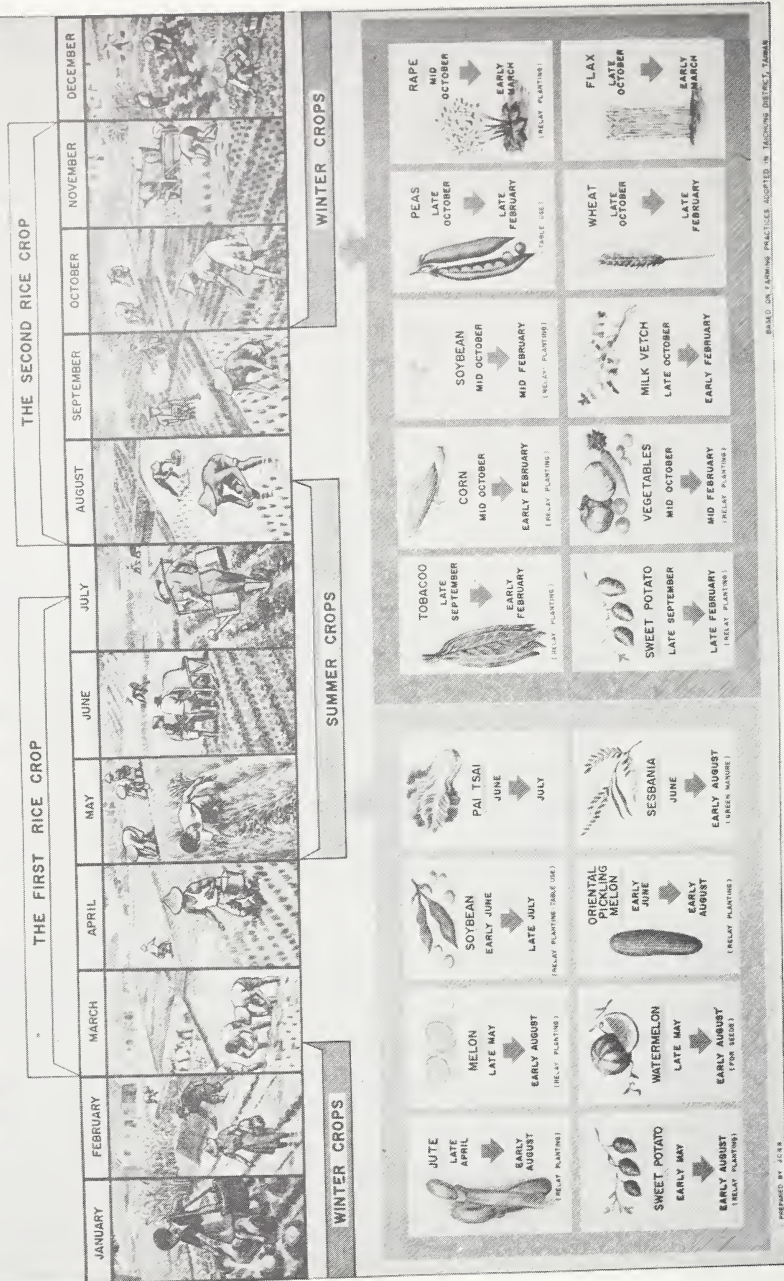 THE FIRST RICE CROP
THE SECOND RICE CROP
JANUARY
FEBRUARY
MARCH
APRIL
MAY
JUNE
JULY
AUGUST
SEPTEMBER
OCTOBER
NOVEMBER
DECEMBER
WINTER CROPS
SUMMER CROPS
WINTER CROPS
JUTE
LATE
APRIL
EARLY
AUGUST
(RELAY PLANTING)
MELON
LATE MAY
EARLY AUGUST
(RELAY PLANTING)
SOYBEAN
EARLY JUNE
LATE JULY
(RELAY PLANTING TABLE USE)
PAI TSAI
JUNE
JULY
SWEET POTATO
EARLY MAY
EARLY AUGUST
(RELAY PLANTING)
WATERMELON
LATE MAY
EARLY AUGUST
(FOR SEEDS)
ORIENTAL
PICKLING
MELON
EARLY
JUNE
EARLY
AUGUST
(RELAY PLANTING)
SESBANIA
JUNE
EARLY AUGUST
(GREEN MANURE)
TOBACOO
LATE
SEPTEMBER
EARLY
FEBRUARY
(RELAY PLANTING)
CORN
MID OCTOBER
EARLY FEBRUARY
(RELAY PLANTING)
SOYBEAN
MID OCTOBER
MID FEBRUARY
(RELAY PLANTING)
PEAS
LATE
OCTOBER
LATE
FEBRUARY
(TABLE USE)
RAPE
MID
OCTOBER
EARLY
MARCH
(RELAY PLANTING)
SWEET POTATO
LATE SEPTEMBER
LATE FEBRUARY
(RELAY PLANTING)
VEGETABLES
MID OCTOBER
MID FEBRUARY
(RELAY PLANTING)
MILK VETCH
LATE OCTOBER
EARLY FEBRUARY
WHEAT
LATE
OCTOBER
LATE
FEBRUARY
FLAX
LATE
OCTOBER
EARLY
MARCH
PREPARED BY JCRR
BASED ON FARMING PRACTICES ADOPTED IN TAICHUNG DISTRICT, TAIWAN